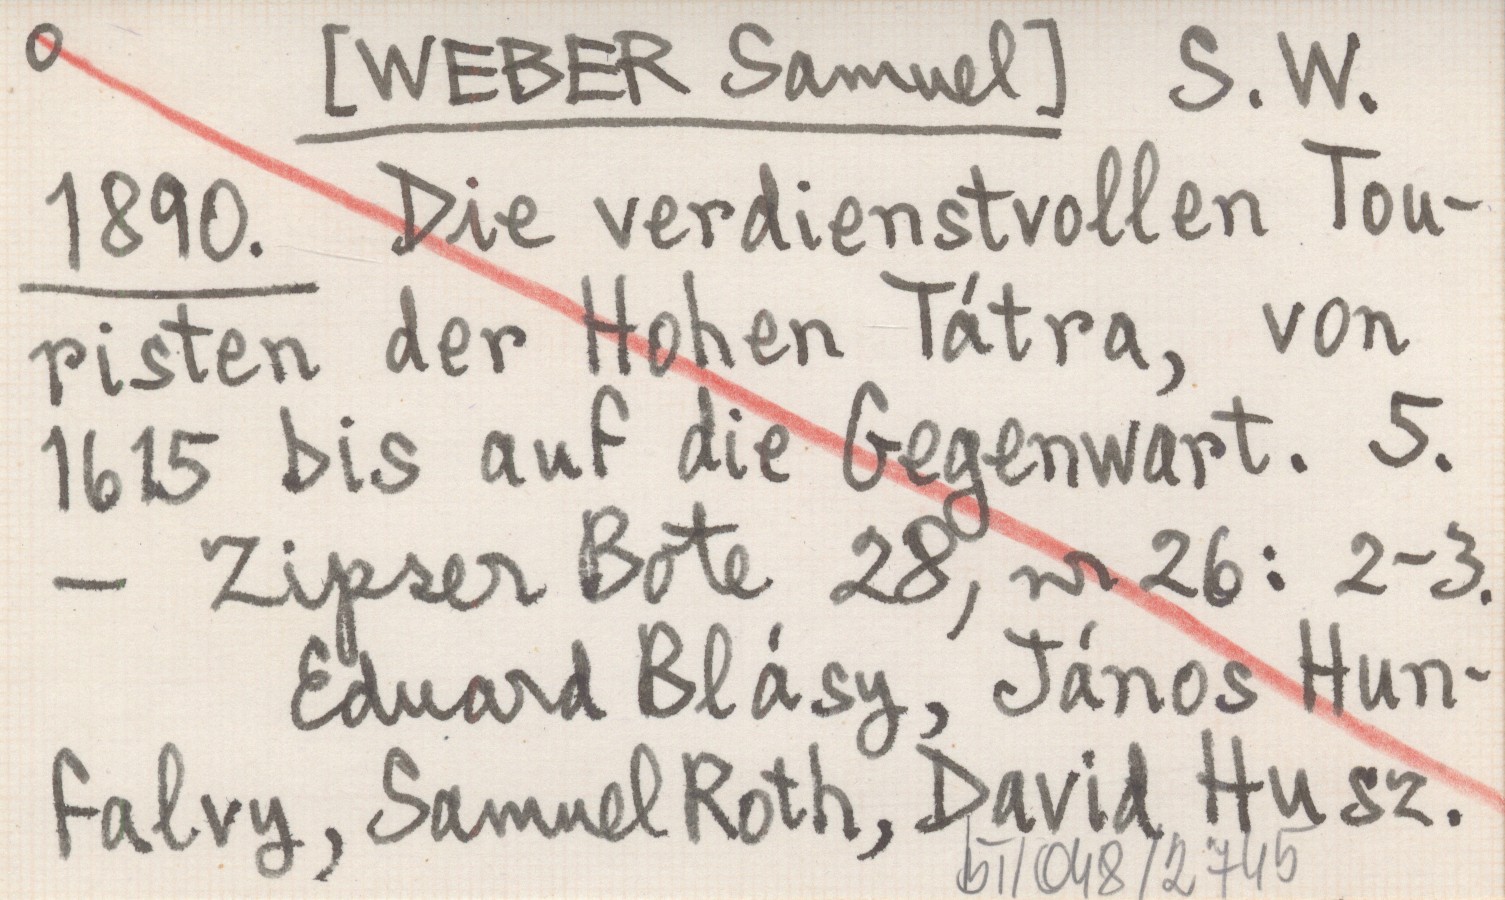 o [WEBER Samuel] S. W.
1890. Die verdienstvollen Tou-
risten der Hohen Tátra, von
1615 bis auf die Gegenwart. 5.
— Zipser Bote 28, nr 26: 2-3.
Eduard Blásy, János Hun-
falvy, Samuel Roth, David Husz.
bI/048/2745